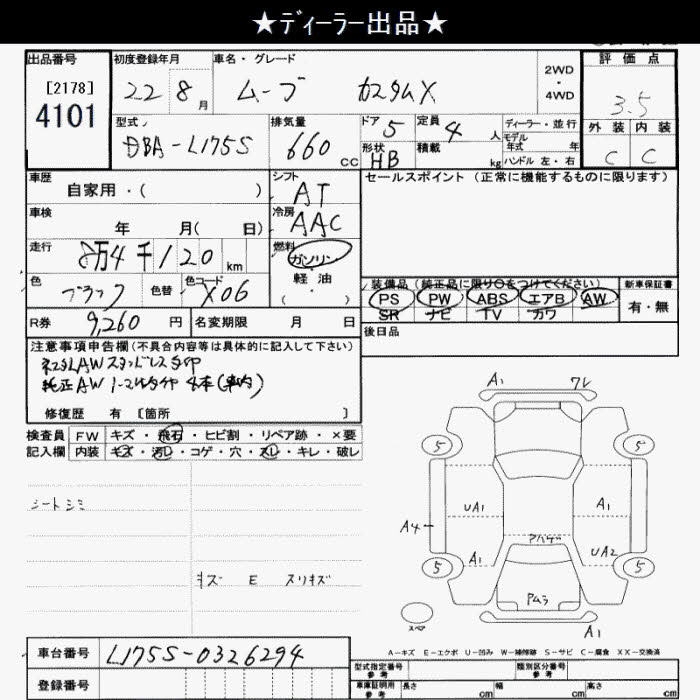 ★ディーラー出品★
出品番号
[2178]
4101
初度登録年月
22 8月
車名・グレード
ムーブ カスタムX
2WD
・
4WD
評価点
3.5
外装 内装
C C
型式
DBA-L175S
排気量
660 cc
ドア 5
定員 4 人
形状 HB
積載 kg
ディーラー・並行
モデル
年式 年
ハンドル 左・右
車歴
自家用・( )
シフト
AT
車検
年 月( 日)
冷房
AAC
走行
8万4千120 km
燃料
ガソリン
・
軽油
( )
色
ブラック
色替
色コード
X06
R券
9,260 円
名変期限 月 日
セールスポイント (正常に機能するものに限ります)
装備品(純正品に限り○をつけてください)
PS PW ABS エアB AW
SR ナビ TV カワ
新車保証書
有・無
後日品
注意事項申告欄(不具合内容等は具体的に記入して下さい)
純正AW
4本(車内)
修復歴 有 [箇所 ]
検査員
記入欄
FW キズ・飛石・ヒビ割・リペア跡・×要
内装 キズ・汚レ・コゲ・穴・スレ・キレ・破レ
シートシミ
キズ E スリキズ
A1
5 5
UA1 A1
A4
アバゲ
A1 UA2
5 5
スペア
A1
A-キズ E-エクボ U-凹み W-補修跡 S-サビ C-腐食 XX-交換済
車台番号 L175S-0326294
登録番号
型式指定番号
参考
類別区分番号
参考
車庫証明用
参考
長さ cm 幅 cm 高さ cm